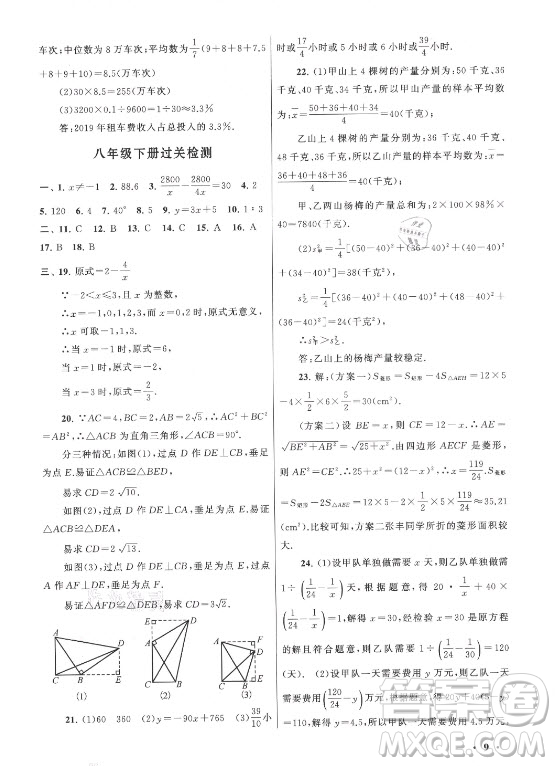 车次;中位数为 8 万车次;平均数为 1/7(9+8+8+7.5
+8+9+10)=8.5(万车次)
(2)30×8.5=255(万车次)
(3)3200×0.1÷9600=1÷30≈3.3%
答:2019年租车费收入占总投入的3.3%.
八年级下册过关检测
一、1. x≠-1 2. 88.6 3. 2800/x - 2800/4x=30 4. 2
5. 120 6. 4 7. 40° 8. 9. y=3x+5 10.
二、11. C 12. C 13. C 14. C 15. A 16. A
17. B 18. B
三、19. 原式=2-4/x
∵-2<x≤3,且 x 为整数,
∴x=-1,0,1,2时,原式无意义,
∴x 可取-1,1,3.
∴当 x=1 时,原式=-2
当 x=3 时,原式=2/3
20. ∵AC=4,BC=2,AB=2√5,∴AC²+BC²
=AB²,∴△ACB为直角三角形,∠ACB=90°.
分三种情况:如图(1),过点 D 作 DE⊥CB,垂足为
点 E.易证△ACB≌△BED,
易求 CD=2√10.
如图(2),过点 D 作 DE⊥CA,垂足为点 E.易证
△ACB≌△DEA,
易求 CD=2√13.
如图(3),过点 D 作 DE⊥CB,垂足为点 E,过点 A
作 AF⊥DE,垂足为点 F.
易证△AFD≌△DEB,易求 CD=3√2.
A D C B E
(1)
D E A C B
(2)
A F D C B E
(3)
21. (1)60 360 (2)y=-90x+765 (3)39/10 小
时或17/4小时或 5 小时或 6 小时或29/4小时.
22. (1)甲山上 4 棵树的产量分别为:50 千克、
36 千克、40 千克、34 千克,所以甲山产量的样本平均数
为:x=(50+36+40+34)/4=40(千克);
乙山上 4 棵树的产量分别为:36 千克、40 千克、48
千克、36 千克,所以乙山产量的样本平均数为 x=
(36+40+48+36)/4=40(千克).
甲、乙两山杨梅的产量总和为:2×100×98%
×40=7840(千克).
(2)s²甲=1/4[(50-40)²+(36-40)²+(40-40)²
+(34-40)²]=38(千克²).
s²乙=1/4[(36-40)²+(40-40)²+(48-40)²+
(36-40)²]=24(千克²).
∴s²甲>s²乙.
答:乙山上的杨梅产量较稳定.
23. 解:(方案一)S菱形=S矩形-4S△AEH=12×5-
4×1/2×6×5/2=30(cm²).
(方案二)设 BE=x,则 CE=12-x,∴AE=
√(BE²+AB²)=√(25+x²).由四边形 AECF 是菱形,
则 AE²=CE²,∴25+x²=(12-x)²,∴x=119/24.∴S菱形
=S矩形-2S△ABE=12×5-2×1/2×5×119/24≈35.21
(cm²).比较可知,方案二张丰同学所折的菱形面积较
大.
24. (1)设甲队单独做需要 x 天,则乙队单独做需
1÷(1/24-1/x)天.根据题意,得 20·1/x+
1÷(1/24-1/x)=110,解得 x=30,经检验 x=30 是原方程
的解且符合题意,则乙队单独做需要 1÷(1/24-1/30)=120天.
(2)设甲队一天需要费用 y 万元,则乙队一天需
9